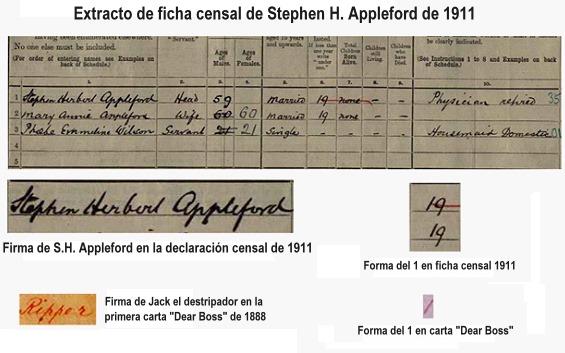 Extracto de ficha censal de Stephen H. Appleford de 1911
No one else must be included.
(For order of entering names see Examples on back of Schedule.)
"Servant." Ages of Males. Ages of Females.
Total Children Born Alive. Children still Living. Children who have Died.
be clearly indicated.
(See Instructions 1 to 8 and Examples on back of Schedule.)
1 Stephen Herbert Appleford Head 59 Married 19 none – – Physician retired 35
2 Mary Annie Appleford Wife 60 60 Married 19 none – –
3 Phoebe Emmeline Wilson Servant 21 21 Single – – – – Housemaid Domestic 01
4
5
Stephen Herbert Appleford
19
19
Firma de S.H. Appleford en la declaración censal de 1911
Forma del 1 en ficha censal 1911
Ripper
Firma de Jack el destripador en la
primera carta "Dear Boss" de 1888
Forma del 1 en carta "Dear Boss"